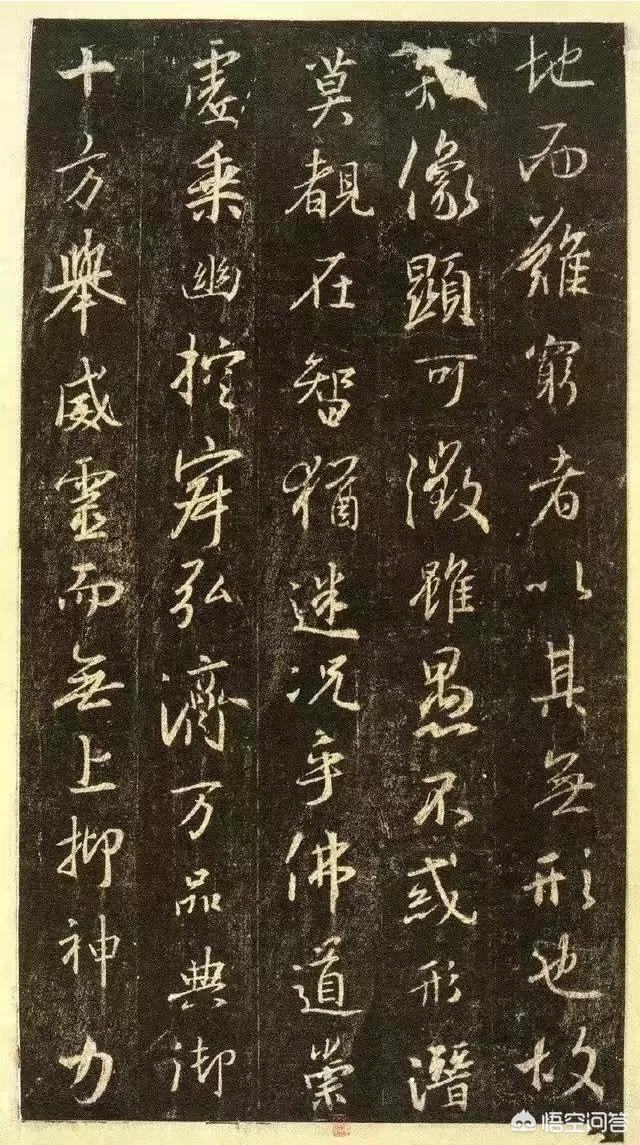 地而難窮者以其無形也故
知像顯可徵雖愚不惑形潛
莫覩在智猶迷况乎佛道崇
虛乘幽控寂弘濟万品典御
十方舉威靈而無上抑神力
悟空问答